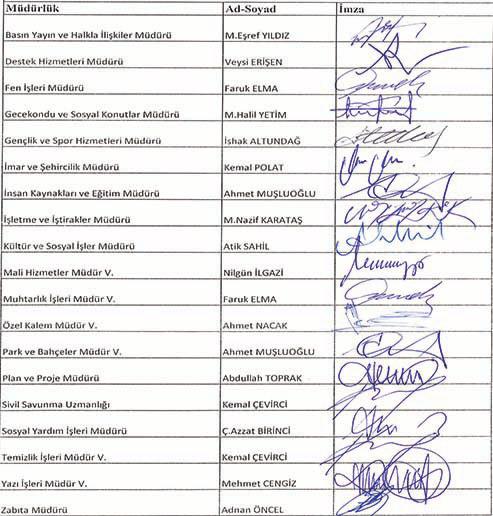 Müdürlük Ad-Soyad İmza
Basın Yayın ve Halkla İlişkiler Müdürü M.Eşref YILDIZ
Destek Hizmetleri Müdürü Veysi ERİŞEN
Fen İşleri Müdürü Faruk ELMA
Gecekondu ve Sosyal Konutlar Müdürü M.Halil YETİM
Gençlik ve Spor Hizmetleri Müdürü İshak ALTUNDAĞ
İmar ve Şehircilik Müdürü Kemal POLAT
İnsan Kaynakları ve Eğitim Müdürü Ahmet MUŞLUOĞLU
İşletme ve İştirakler Müdürü M.Nazif KARATAŞ
Kültür ve Sosyal İşler Müdürü Atik SAHİL
Mali Hizmetler Müdür V. Nilgün İLGAZİ
Muhtarlık İşleri Müdür V. Faruk ELMA
Özel Kalem Müdür V. Ahmet NACAK
Park ve Bahçeler Müdür V. Ahmet MUŞLUOĞLU
Plan ve Proje Müdürü Abdullah TOPRAK
Sivil Savunma Uzmanlığı Kemal ÇEVİRCİ
Sosyal Yardım İşleri Müdürü Ç.Azzat BİRİNCİ
Temizlik İşleri Müdür V. Kemal ÇEVİRCİ
Yazı İşleri Müdür V. Mehmet CENGİZ
Zabıta Müdürü Adnan ÖNCEL